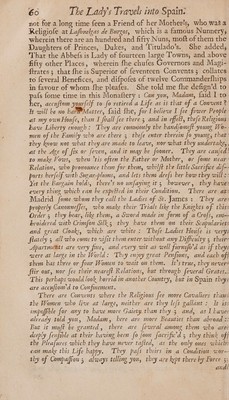 60 The Lady's Travels into Spain.
not for a long time seen a Friend of her Mothers, who was a
Religiose at Lashuelgas de Burgos, which is a famous Nunnery,
wherein there are an hundred and fifty Nuns, most of them the
Daughters of Princes, Dukes, and Titulado's. She added,
That the Abbess is Lady of fourteen large Towns, and above
fifty other Places, wherein she chuses Governors and Magi-
strates; that she is Superior of seventeen Convents; collates
to several Benefices, and disposes of twelve Commanderships
in favour of whom she pleases. She told me she design'd to
pass some time in this Monastery: Can you, Madam, said I to
her, accustom your self to so retired a Life as it is that of a Convent?
It will be no hard Matter, said she, for I believe I see fewer People
at my own House, than I shall see there; and in effect, these Religious
have Liberty enough: They are commonly the handsomest young Wo-
men of the Family who are there; these enter therein so young, that
they know not what they are made to leave, nor what they undertake,
at the Age of six or seven, and it may be sooner. They are caused
to make Vows, when 'tis often the Father or Mother, or some near
Relation, who pronounce them for them, whilst the little Sacrifice dis-
ports herself with Sugar-plumbs, and lets them dress her how they will:
Yet the Bargain holds, there's no unsaying it; however, they have
every thing which can be expected in their Condition. There are at
Madrid some whom they call the Ladies of St. James: They are
properly Canonesses, who make their Trials like the Knights of this
Order; they bear, like them, a Sword made in form of a Cross, em-
broidered with Crimson Silk; they have them on their Scapularies
and great Cloaks, which are white: These Ladies House is very
stately; all who come to visit them enter without any Difficulty; their
Apartments are very fine, and every whit as well furnish'd as if they
were at large in the World: They enjoy great Pensions, and each of
them has three or four Women to wait on them. It's true, they never
stir out, nor see their nearest Relations, but through several Grates.
This perhaps would look horrid in another Country, but in Spain they
are accustom'd to Confinement.
There are Convents where the Religiose see more Cavaliers than
the Women who live at large, neither are they less gallant: It is
impossible for any to have more Gaiety than they; and, as I have
already told you, Madam, here are more Beauties than abroad:
But it must be granted, there are several among them who are
deeply sensible at their having been so soon sacrific'd; they think of
the Pleasures which they have never tasted, as the only ones which
can make this Life happy. They pass theirs in a Condition wor-
thy of Compassion; always telling you, they are kept there by Force;
and